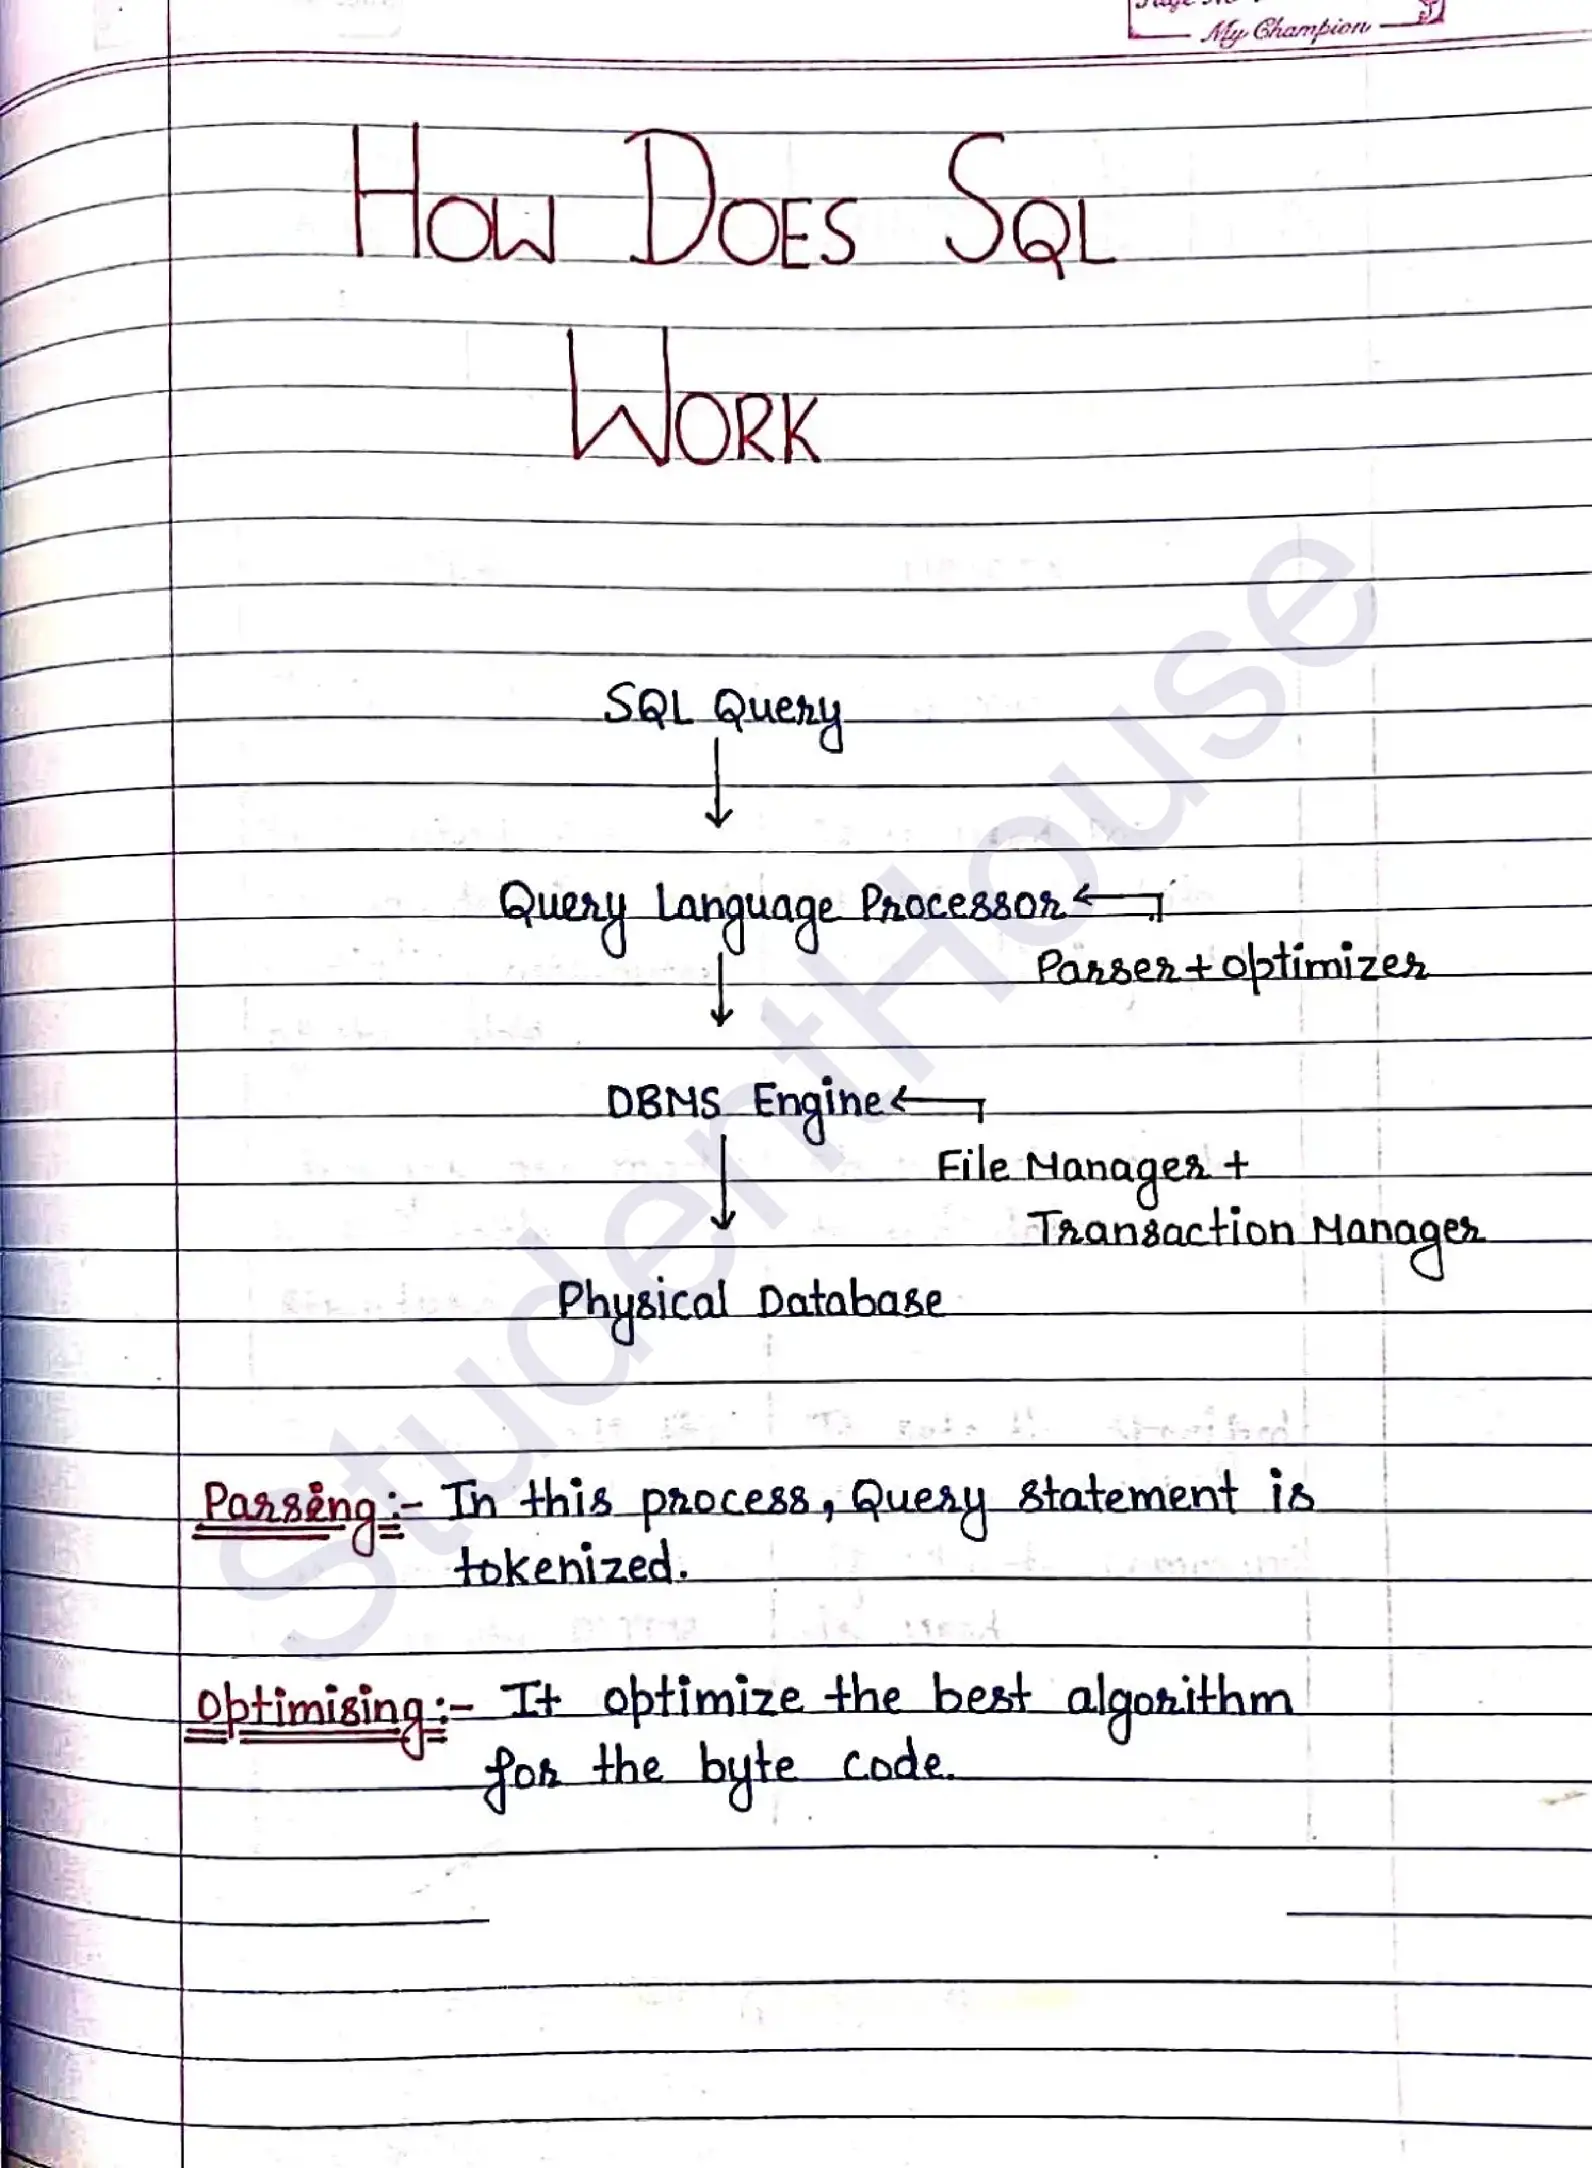 My Champion
HOW DOES SQL
WORK
SQL Query
Query Language Processor
Parser + Optimizer
DBMS Engine
File Manager +
Transaction Manager
Physical Database
Parsing :- In this process, Query statement is
tokenized.
Optimising :- It optimize the best algorithm
for the byte code.
StudentHouse